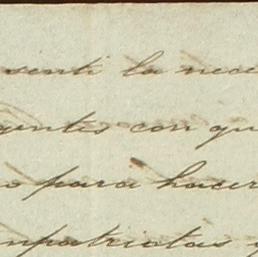 senti la nece
gentes con qu
o para hacer
npatriotas y